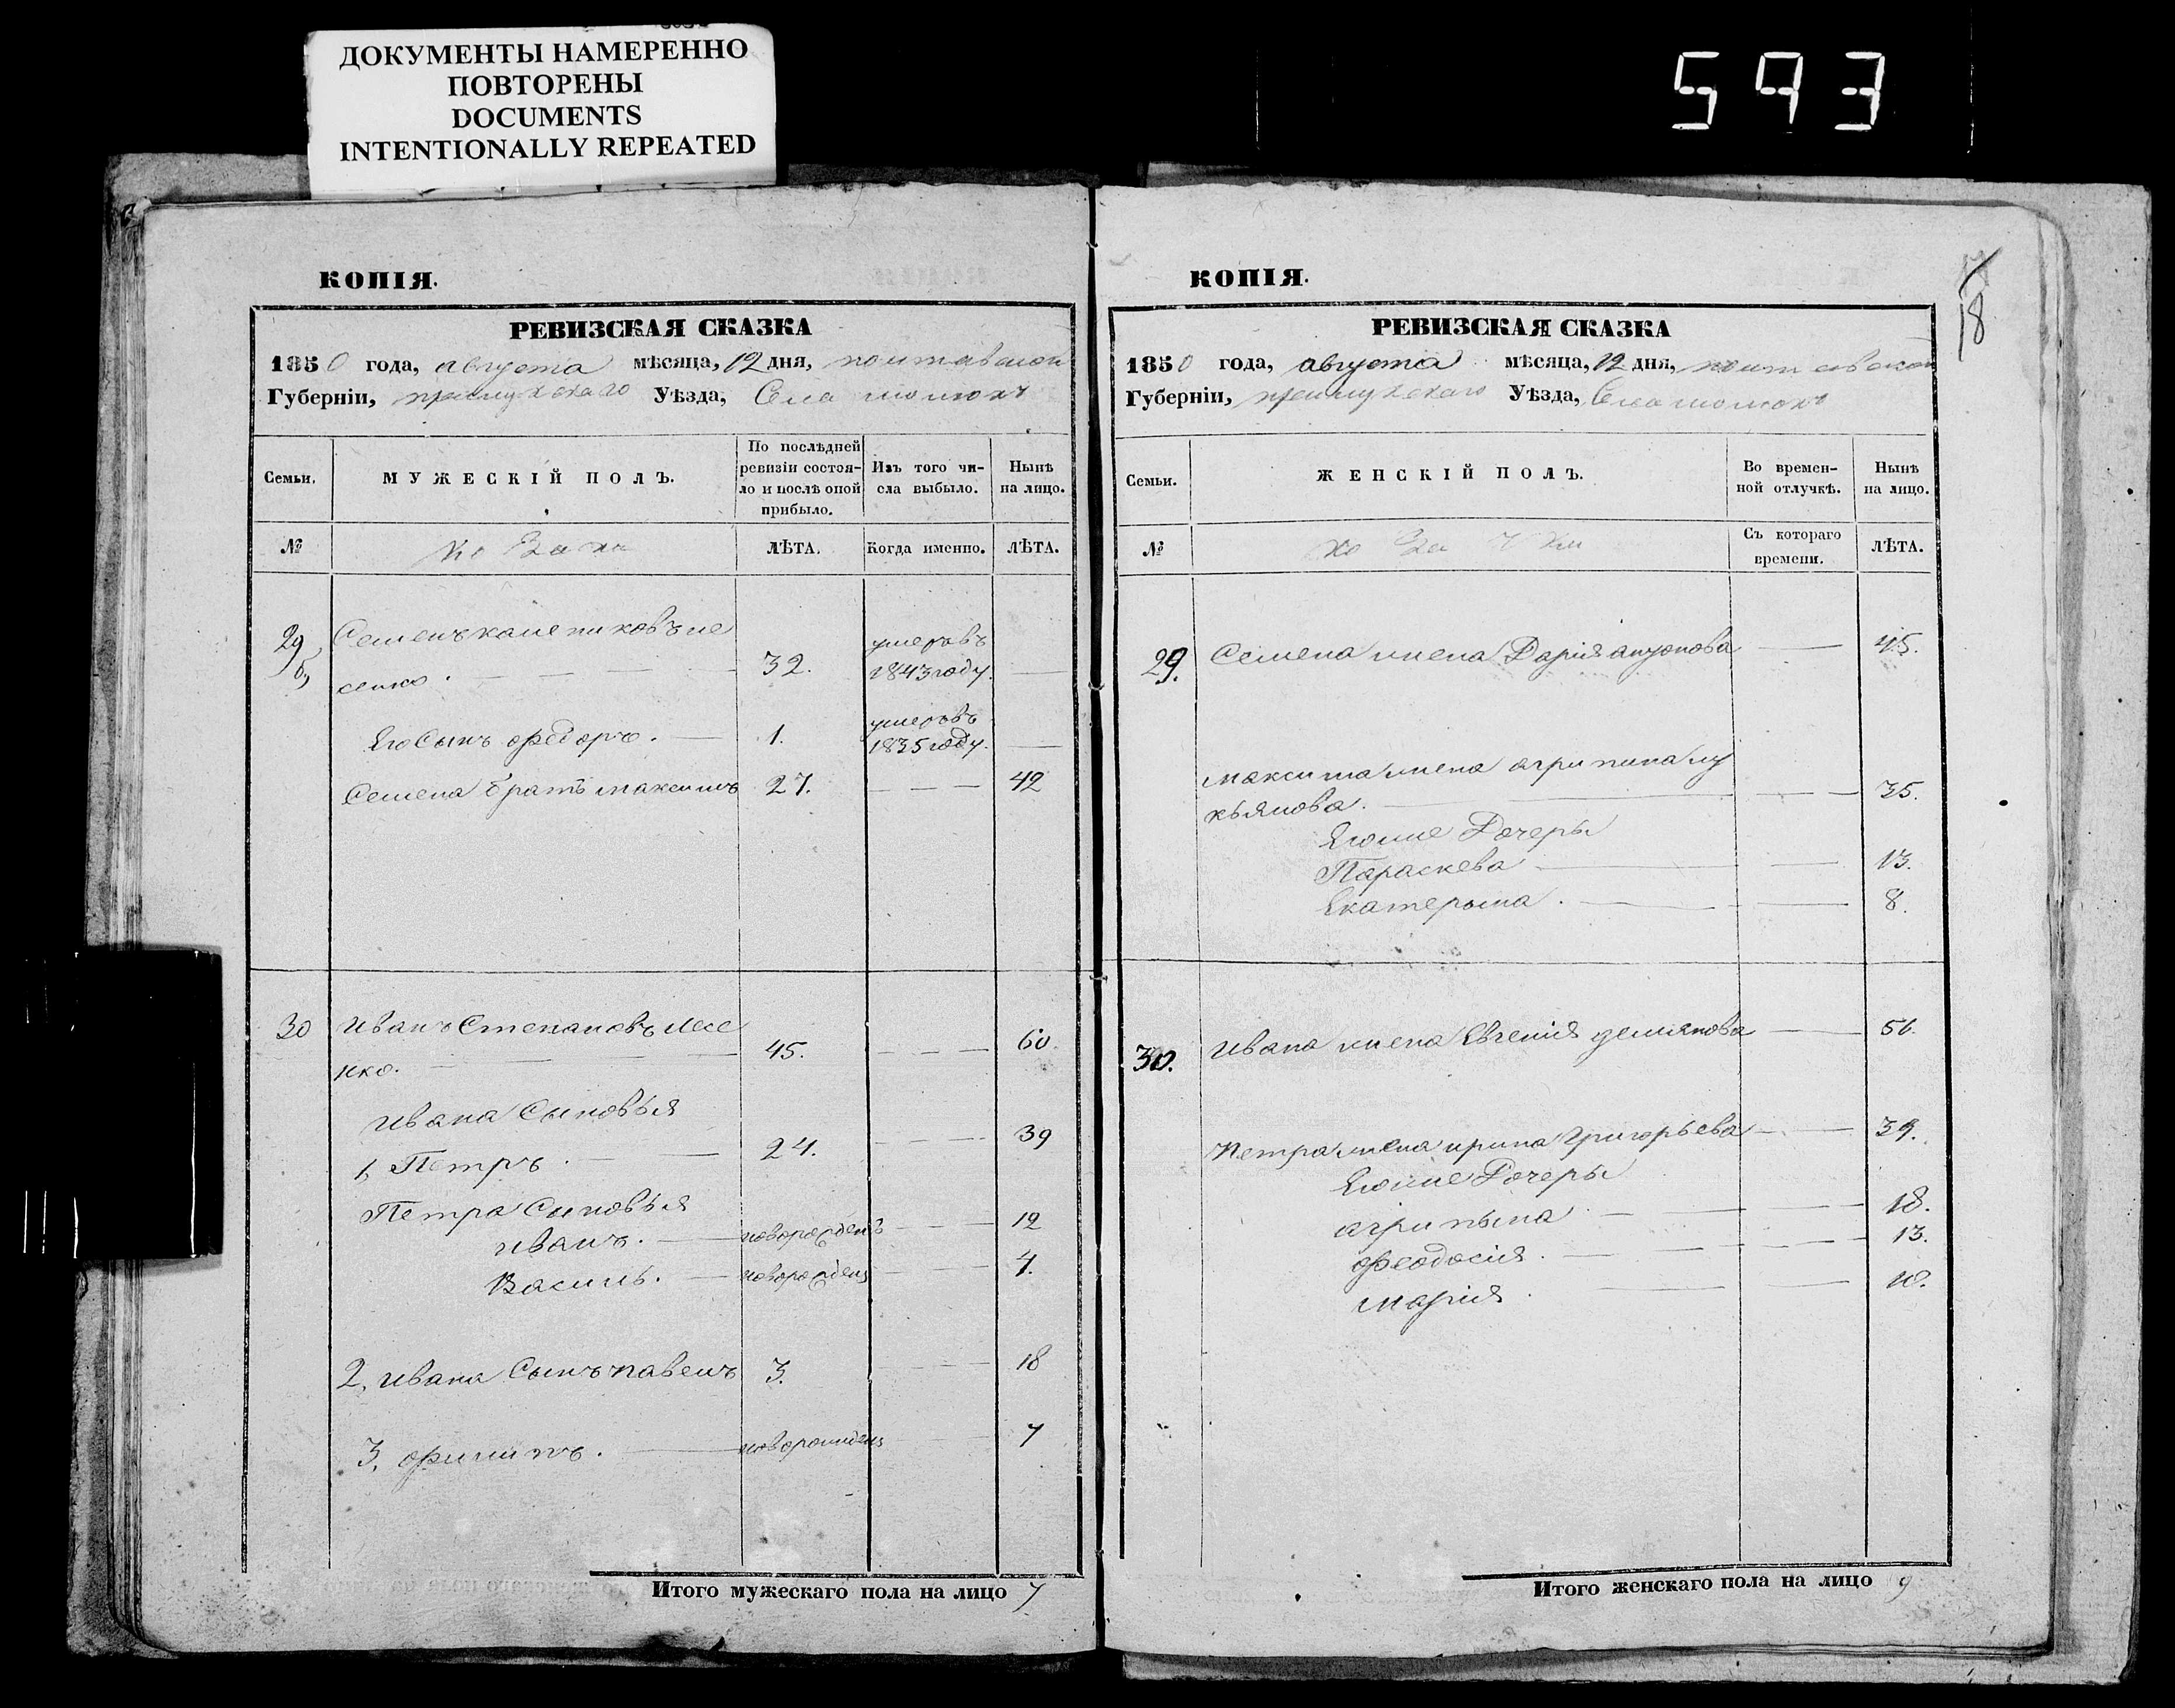 ДОКУМЕНТЫ НАМЕРЕННО
ПОВТОРЕНЫ
DOCUMENTS
INTENTIONALLY REPEATED
593
КОПІЯ.
РЕВИЗСКАЯ СКАЗКА
1850 года, августа мѣсяца, 12 дня, полтавской
Губерніи, прилукскаго Уѣзда, Села
Семьи.
МУЖЕСКІЙ ПОЛЪ.
По послѣдней
ревизіи состоя-
ло и послѣ оной
прибыло.
Изъ того чи-
сла выбыло.
Нынѣ
на лицо.
№
Козаки
ЛѢТА.
Когда именно.
ЛѢТА.
29
Семенъ
сенко. 32. умеръ въ 1843 году.
Его Сынъ федоръ. 1. умеръ въ 1835 году.
Семена братъ максимъ 27. 42
30 Иванъ Степановъ Лесе
нко. 45. 60.
Ивана Сыновья
1, Петръ. 24. 39
Петра Сыновья
иванъ. новорожденъ 12
Василь. новорожденъ 4.
2, ивана Сынъ павелъ 3. 18
3, филипъ. новорожденъ 7
Итого мужескаго пола на лицо 7
18
КОПІЯ.
РЕВИЗСКАЯ СКАЗКА
1850 года, августа мѣсяца, 12 дня, полтавской
Губерніи, прилукскаго Уѣзда, Села
Семьи.
ЖЕНСКІЙ ПОЛЪ.
Во времен-
ной отлучкѣ.
Нынѣ
на лицо.
№
козачки
Съ котораго
времени.
ЛѢТА.
29. Семена жена Дарія антонова 45.
максима жена агрипина лу
кьянова. 35.
Егоже Дочеры
Параскева 13.
Екатерына. 8.
30. Ивана жена Евгенія демянова 51.
Петра жена ирина Григорьева 39.
Егоже Дочеры
агрипына 18.
феодосія. 13.
марія. 10.
Итого женскаго пола на лицо 9